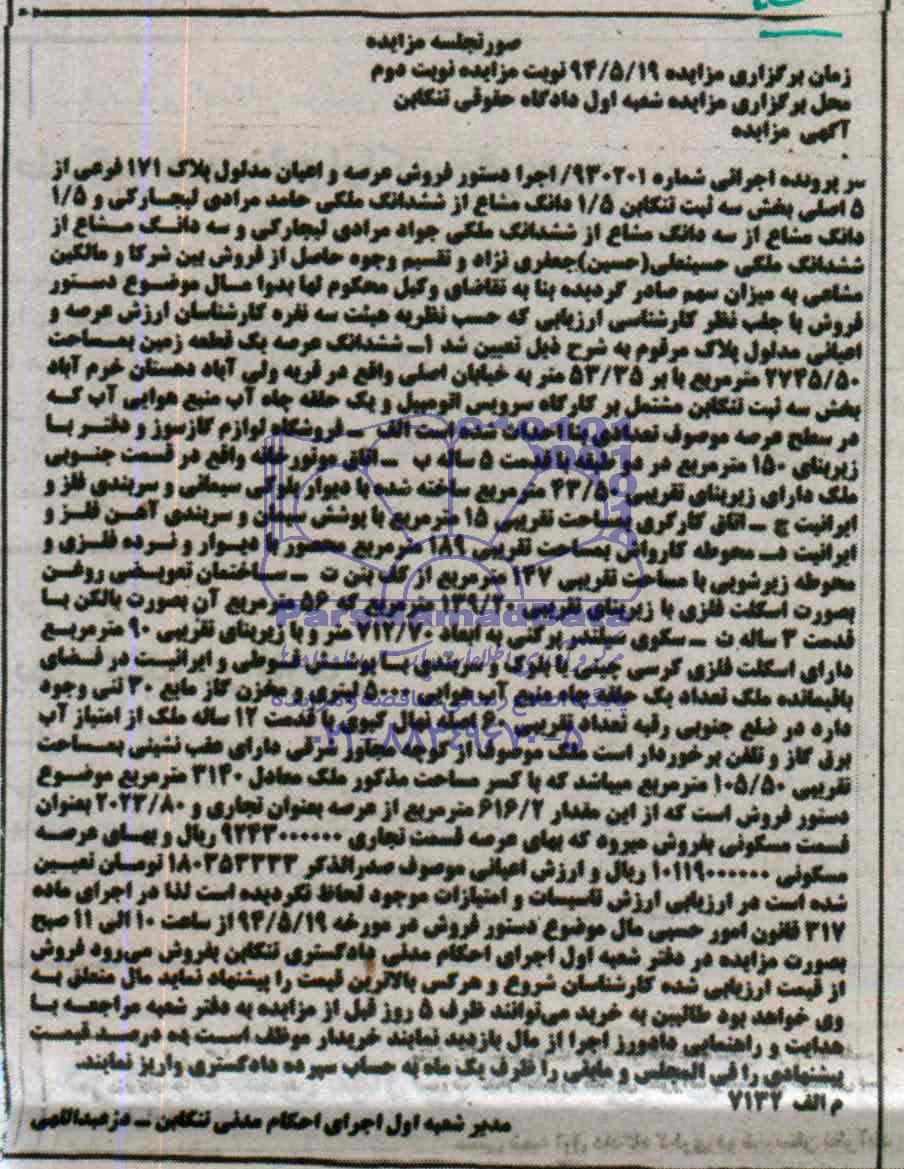 صورتجلسه مزایده
زمان برگزاری مزایده ۹۴/۵/۱۹ نوبت مزایده نوبت دوم
محل برگزاری مزایده شعبه اول دادگاه حقوقی تنکابن
آگهی مزایده
در پرونده اجرائی شماره ۹۳۰۲۰۱/ اجرا دستور فروش عرصه و اعیان مدلول پلاک ۱۷۱ فرعی از
۵ اصلی بخش سه ثبت تنکابن ۱/۵ دانک مشاع از ششدانک ملکی حامد مرادی لیجارکی و ۱/۵
دانک مشاع از سه دانک مشاع از ششدانک ملکی جواد مرادی لیجارکی و سه دانک مشاع از
ششدانک ملکی حسینعلی(حسین)جعفری نژاد و تقسیم وجوه حاصل از فروش بین شرکا و مالکین
مشاعی به میزان سهم صادر گردیده بنا به تقاضای وکیل محکوم لها بدوا مال موضوع دستور
فروش با جلب نظر کارشناسی ارزیابی که حسب نظریه هیئت سه نفره کارشناسان ارزش عرصه و
اعیانی مدلول پلاک مرقوم به شرح ذیل تعیین شد ۱ـ ششدانک عرصه یک قطعه زمین بمساحت
۲۷۴۵/۵۰ مترمربع با بر ۵۳/۳۵ متر به خیابان اصلی واقع در قریه ولی آباد دهستان خرم آباد
بخش سه ثبت تنکابن مشتمل بر کارگاه سرویس اتومبیل و یک حلقه چاه آب منبع هوایی آب که
در سطح عرصه موصوف تعدادی بنا احداث شده است الف ـ فروشگاه لوازم گازسوز و دفتر با
زیربنای ۱۵۰ مترمربع در دو طبقه با قدمت ۵ ساله ب ـ اتاق موتورخانه واقع در قسمت جنوبی
ملک دارای زیربنای تقریبی ۴۳/۵۰ مترمربع ساخته شده با دیوار بلوکی سیمانی و سربندی فلز و
ایرانیت ج ـ اتاق کارگری بمساحت تقریبی ۱۵ مترمربع با پوشش سیمان و سربندی آهن فلز و
ایرانیت دـ محوطه کارواش بمساحت تقریبی ۱۸۹ مترمربع محصور با دیوار و نرده فلزی و
محوطه زیرشویی با مساحت تقریبی ۱۴۷ مترمربع از کف بتن ت ـ ساختمان تعویضی روغن
بصورت اسکلت فلزی با زیربنای تقریبی ۱۳۹/۲۰ مترمربع که ۵۶ مترمربع آن بصورت بالکن با
قدمت ۳ ساله ث ـ سکوی سیلندر پرکنی به ابعاد ۷۱۲/۷۰ متر و با زیربنای تقریبی ۹۰ مترمربع
دارای اسکلت فلزی کرسی چینی با بلوک و سربندی با پوشش قوطی و ایرانیت در فضای
باقیمانده ملک تعداد یک حلقه چاه منبع آب هوایی لیتری و مخزن گاز مایع ۳۰ تنی وجود
دارد در ضلع جنوبی رقبه تعداد تقریبی ۶۰ اصله نهال کیوی با قدمت ۱۲ ساله ملک از امتیاز آب
برق گاز و تلفن برخوردار است ملک موصوف از کوچه مجاور شرقی دارای عقب نشینی بمساحت
تقریبی ۱۰۵/۵۰ مترمربع میباشد که با کسر مساحت مذکور ملک معادل ۳۱۴۰ مترمربع موضوع
دستور فروش است که از این مقدار ۶۱۶/۲ مترمربع از عرصه بعنوان تجاری و ۲۰۲۳/۸۰ بعنوان
قسمت مسکونی بفروش میرود که بهای عرصه قسمت تجاری ۹۲۴۳۰۰۰۰۰۰ ریال و بهای عرصه
مسکونی ۱۰۱۱۹۰۰۰۰۰۰ ریال و ارزش اعیانی موصوف صدرالذکر ۱۸۰۳۵۳۳۳۳ تومان تعیین
شده است در ارزیابی ارزش تاسیسات و امتیازات موجود لحاظ نکردیده است لذا در اجرای ماده
۳۱۷ قانون امور حسبی مال موضوع دستور فروش در مورخه ۹۴/۵/۱۹ از ساعت ۱۰ الی ۱۱ صبح
بصورت مزایده در دفتر شعبه اول اجرای احکام مدنی دادگستری تنکابن بفروش می‌رود فروش
از قیمت ارزیابی شده کارشناسان شروع و هرکس بالاترین قیمت را پیشنهاد نماید مال متعلق به
وی خواهد بود طالبین به خرید می‌توانند ظرف ۵ روز قبل از مزایده به دفتر شعبه مراجعه با
هدایت و راهنمایی دادورز اجرا از مال بازدید نمایند خریدار موظف است ده درصد قیمت
پیشنهادی را فی المجلس و مابقی را ظرف یک ماه به حساب سپرده دادگستری واریز نمایند.
م الف ۷۱۳۲
مدیر شعبه اول اجرای احکام مدنی تنکابن ـ دزعبداللهی
ParsNamadData
پایگاه اطلاع رسانی مناقصه و مزایده
۰۲۱-۸۸۳۴۹۶۷۰-۵